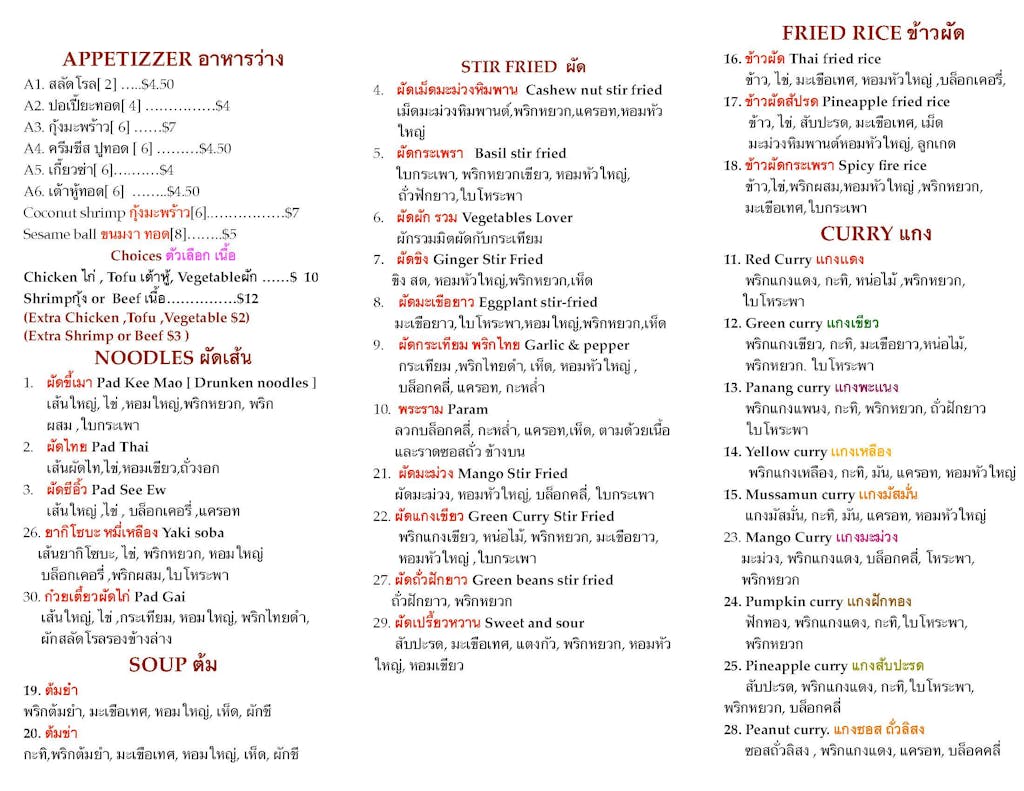 APPETIZZER อาหารว่าง
A1. สลัดโรล[ 2] …..$4.50
A2. ปอเปี๊ยะทอด[ 4] ……………$4
A3. กุ้งมะพร้าว[ 6] ……$7
A4. ครีมชีส ปูทอด [ 6] ………$4.50
A5. เกี๊ยวซ่า[ 6]……….$4
A6. เต้าหู้ทอด[ 6] ……..$4.50
Coconut shrimp กุ้งมะพร้าว[6].…………….$7
Sesame ball ขนมงา ทอด[8]……..$5
Choices ตัวเลือก เนื้อ
Chicken ไก่ , Tofu เต้าหู้, Vegetableผัก ……$ 10
Shrimpกุ้ง or Beef เนื้อ……………$12
(Extra Chicken ,Tofu ,Vegetable $2)
(Extra Shrimp or Beef $3 )
NOODLES ผัดเส้น
1. ผัดขี้เมา Pad Kee Mao [ Drunken noodles ]
เส้นใหญ่, ไข่ ,หอมใหญ่,พริกหยวก, พริก
ผสม ,ใบกระเพา
2. ผัดไทย Pad Thai
เส้นผัดไท,ไข่,หอมเขียว,ถั่วงอก
3. ผัดซีอิ๊ว Pad See Ew
เส้นใหญ่ ,ไข่ , บล็อกเคอรี่ ,แครอท
26. ยากิโซบะ หมี่เหลือง Yaki soba
เส้นยากิโซบะ, ไข่, พริกหยวก, หอมใหญ่
บล็อกเคอรี่ ,พริกผสม,ใบโหระพา
30. ก๋วยเตี๋ยวผัดไก่ Pad Gai
เส้นใหญ่, ไข่ ,กระเทียม, หอมใหญ่, พริกไทยดำ,
ผักสลัดโรลรองข้างล่าง
SOUP ต้ม
19. ต้มยำ
พริกต้มยำ, มะเขือเทศ, หอมใหญ่, เห็ด, ผักชี
20. ต้มข่า
กะทิ,พริกต้มยำ, มะเขือเทศ, หอมใหญ่, เห็ด, ผักชี
STIR FRIED ผัด
4. ผัดเม็ดมะม่วงหิมพาน Cashew nut stir fried
เม็ดมะม่วงหิมพานต์,พริกหยวก,แครอท,หอมหัว
ใหญ่
5. ผัดกระเพรา Basil stir fried
ใบกระเพา, พริกหยวกเขียว, หอมหัวใหญ่,
ถั่วฟักยาว,ใบโหระพา
6. ผัดผัก รวม Vegetables Lover
ผักรวมมิตผัดกับกระเทียม
7. ผัดขิง Ginger Stir Fried
ขิง สด, หอมหัวใหญ่,พริกหยวก,เห็ด
8. ผัดมะเขือยาว Eggplant stir-fried
มะเขือยาว,ใบโหระพา,หอมใหญ่,พริกหยวก,เห็ด
9. ผัดกระเทียม พริกไทย Garlic & pepper
กระเทียม ,พริกไทยดำ, เห็ด, หอมหัวใหญ่ ,
บล็อกคลี่, แครอท, กะหล่ำ
10. พระราม Param
ลวกบล็อกคลี่, กะหล่ำ, แครอท,เห็ด, ตามด้วยเนื้อ
และราดซอสถั่ว ข้างบน
21. ผัดมะม่วง Mango Stir Fried
ผัดมะม่วง, หอมหัวใหญ่, บล็อกคลี่, ใบกระเพา
22. ผัดแกงเขียว Green Curry Stir Fried
พริกแกงเขียว, หน่อไม้, พริกหยวก, มะเขือยาว,
หอมหัวใหญ่ ,ใบกระเพา
27. ผัดถั่วฝักยาว Green beans stir fried
ถั่วฝักยาว, พริกหยวก
29. ผัดเปรี้ยวหวาน Sweet and sour
สับปะรด, มะเขือเทศ, แตงกัว, พริกหยวก, หอมหัว
ใหญ่, หอมเขียว
FRIED RICE ข้าวผัด
16. ข้าวผัด Thai fried rice
ข้าว, ไข่, มะเขือเทศ, หอมหัวใหญ่ ,บล็อกเคอรี่,
17. ข้าวผัดสัปรด Pineapple fried rice
ข้าว, ไข่, สับปะรด, มะเขือเทศ, เม็ด
มะม่วงหิมพานต์หอมหัวใหญ่, ลูกเกด
18. ข้าวผัดกระเพรา Spicy fire rice
ข้าว,ไข่,พริกผสม,หอมหัวใหญ่ ,พริกหยวก,
มะเขือเทศ,ใบกระเพา
CURRY แกง
11. Red Curry แกงแดง
พริกแกงแดง, กะทิ, หน่อไม้ ,พริกหยวก,
ใบโหระพา
12. Green curry แกงเขียว
พริกแกงเขียว, กะทิ, มะเขือยาว,หน่อไม้,
พริกหยวก. ใบโหระพา
13. Panang curry แกงพะแนง
พริกแกงแพนง, กะทิ, พริกหยวก, ถั่วฝักยาว
ใบโหระพา
14. Yellow curry แกงเหลือง
พริกแกงเหลือง, กะทิ, มัน, แครอท, หอมหัวใหญ่
15. Mussamun curry แกงมัสมั่น
แกงมัสมั่น, กะทิ, มัน, แครอท, หอมหัวใหญ่
23. Mango Curry แกงมะม่วง
มะม่วง, พริกแกงแดง, บล็อกคลี่, โหระพา,
พริกหยวก
24. Pumpkin curry แกงฝักทอง
ฟักทอง, พริกแกงแดง, กะทิ,ใบโหระพา,
พริกหยวก
25. Pineapple curry แกงสับปะรด
สับปะรด, พริกแกงแดง, กะทิ,ใบโหระพา,
พริกหยวก, บล็อกคลี่
28. Peanut curry. แกงซอส ถั่วลิสง
ซอสถั่วลิสง , พริกแกงแดง, แครอท, บล็อคคลี่